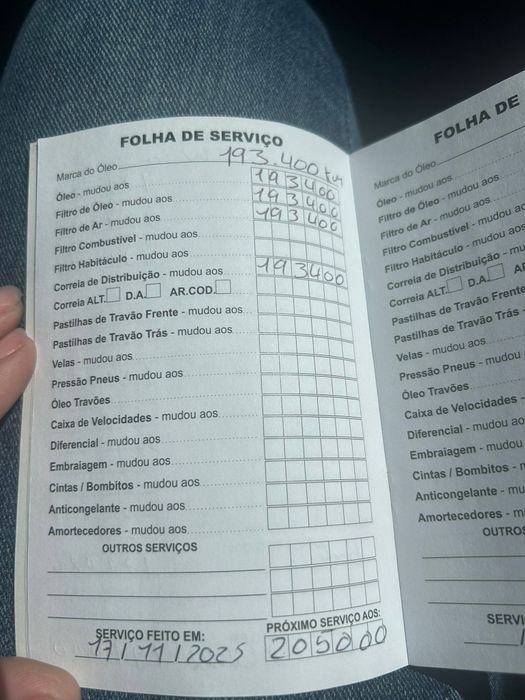 FOLHA DE SERVIÇO
Marca do Óleo 193.400 km
Óleo - mudou aos 193400
Filtro de Óleo - mudou aos 193400
Filtro de Ar - mudou aos 193400
Filtro Combustível - mudou aos
Filtro Habitáculo - mudou aos
Correia de Distribuição - mudou aos 193400
Correia ALT. D.A. AR.COD.
Pastilhas de Travão Frente - mudou aos
Pastilhas de Travão Trás - mudou aos
Velas - mudou aos
Pressão Pneus - mudou aos
Óleo Travões
Caixa de Velocidades - mudou aos
Diferencial - mudou aos
Embraiagem - mudou aos
Cintas / Bombitos - mudou aos
Anticongelante - mudou aos
Amortecedores - mudou aos
OUTROS SERVIÇOS
SERVIÇO FEITO EM:
17/11/2025
PRÓXIMO SERVIÇO AOS:
205000
FOLHA DE
Marca do Óleo
Óleo - mudou aos
Filtro de Óleo - mudou aos
Filtro de Ar - mudou aos
Filtro Combustível - mudou ao
Filtro Habitáculo - mudou aos
Correia de Distribuição - mu
Correia ALT. D.A. AR
Pastilhas de Travão Frente
Pastilhas de Travão Trás
Velas - mudou aos
Pressão Pneus - mudou
Óleo Travões
Caixa de Velocidades -
Diferencial - mudou ao
Embraiagem - mudou
Cintas / Bombitos - m
Anticongelante - mu
Amortecedores - m
OUTROS
SERVI